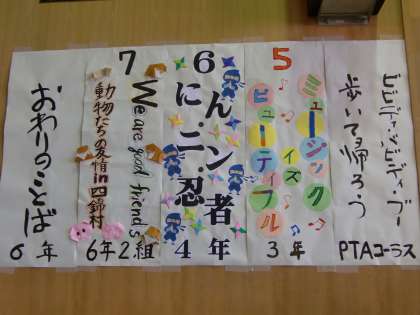 ビビディ・バビディ・ブー
歩いて帰ろう
PTAコーラス
5
ミュージック
イズ
ビューティフル
3年
6
にんニン.忍者
4年
7
We are good friends
動物たちの友情in四錦村
6年2組
おわりのことば
6年